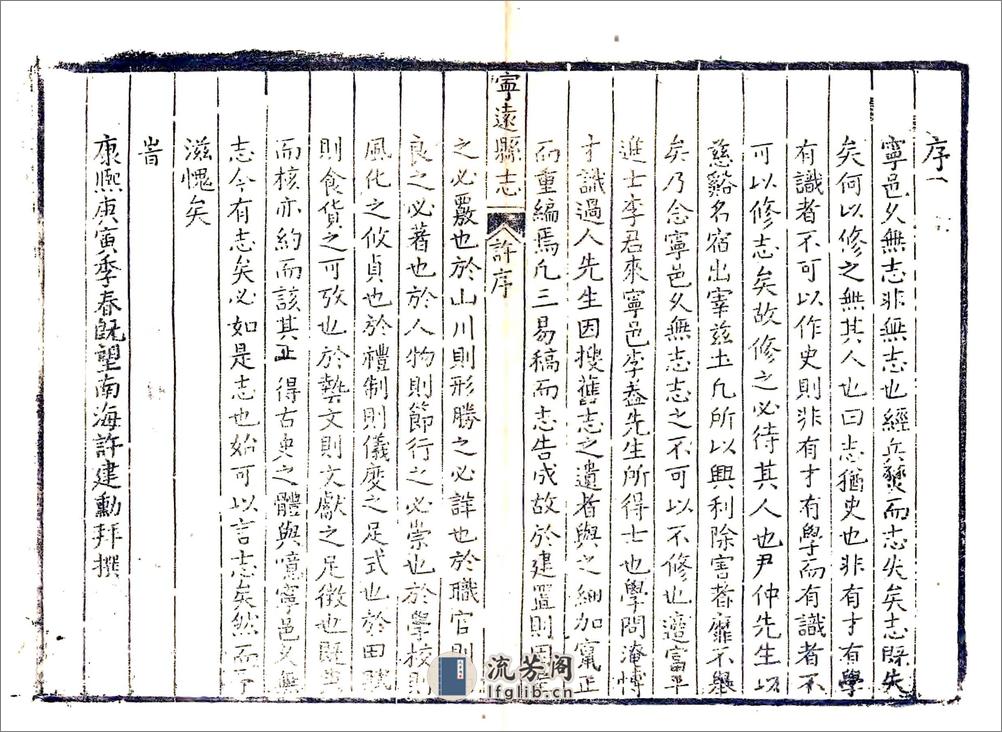 序
寧邑久無志非無志也經兵燹而志失矣志旣失
矣何以修之無其人也曰志猶史也非有才有學
有識者不可以作史則非有才有學而有識者不
可以修志矣故修之必待其人也尹仲先生以
慈谿名宿出宰茲土凡所以興利除害者靡不舉
矣乃念寧邑久無志志之不可以不修也適富平
進士李君來寧邑李葢先生所得士也學問淹博
才識過人先生因搜舊志之遺者與之細加竄正
而重編焉凡三易稿而志告成故於建置則
寧遠縣志
許序
之必覈也於山川則形勝之必詳也於職官則
良之必著也於人物則節行之必崇也於學校則
風化之攸貞也於禮制則儀度之足式也於田賦
則食貨之可攷也於藝文則文獻之足徵也旣
而核亦約而該其正得古史之體與憶寧邑久無
志今有志矣必如是志也始可以言志矣然而予
滋愧矣
旹
康熙庚寅季春旣望南海許建勳拜撰
流芳阁
lfglib.cn